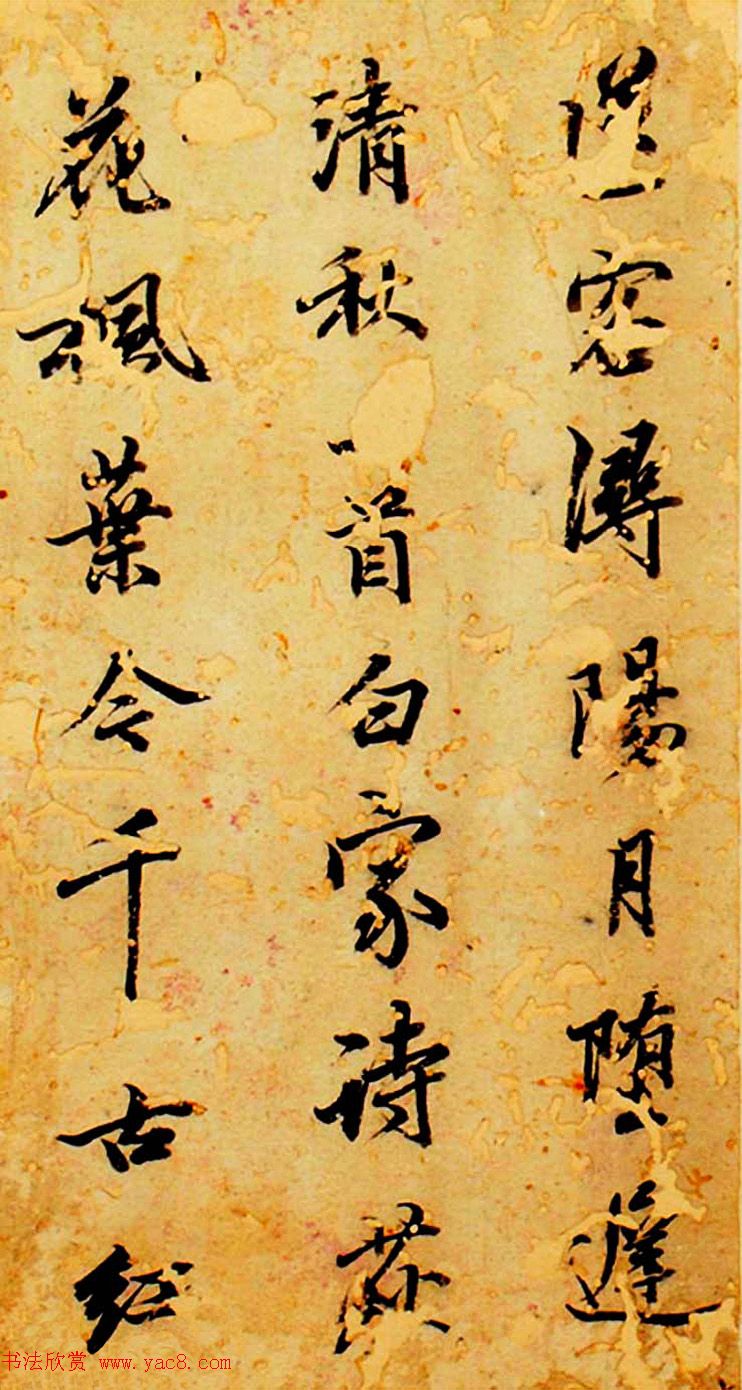 潯陽月墮遲
清秋一首白家詩荻
花楓葉今千古絕
书法欣赏 www.yac8.com